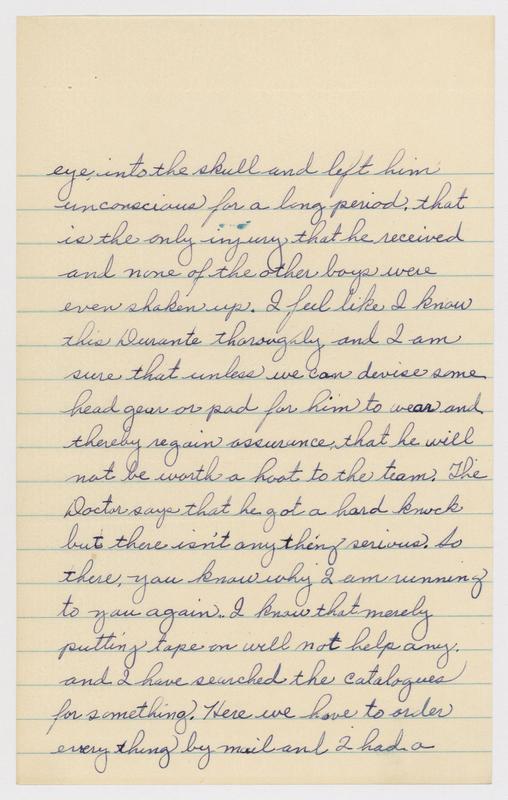 eye, into the skull and left him
unconscious for a long period. that
is the only injury that he received
and none of the other boys were
even shaken up. I feel like I know
this Durante thorougaly and I am
sure that unless we can devise some
head gear or pad for him to wear and
thereby regain assurance, that he will
not be worth a hoot to the team. The
Doctor says that he got a hard knock
but there isn't anything serious. So
there, you know why I am running
to you again. I know that merely
putting tape on will not help any.
and I have searched the catalogues
for something. Here we have to order
everything by mail and I had a